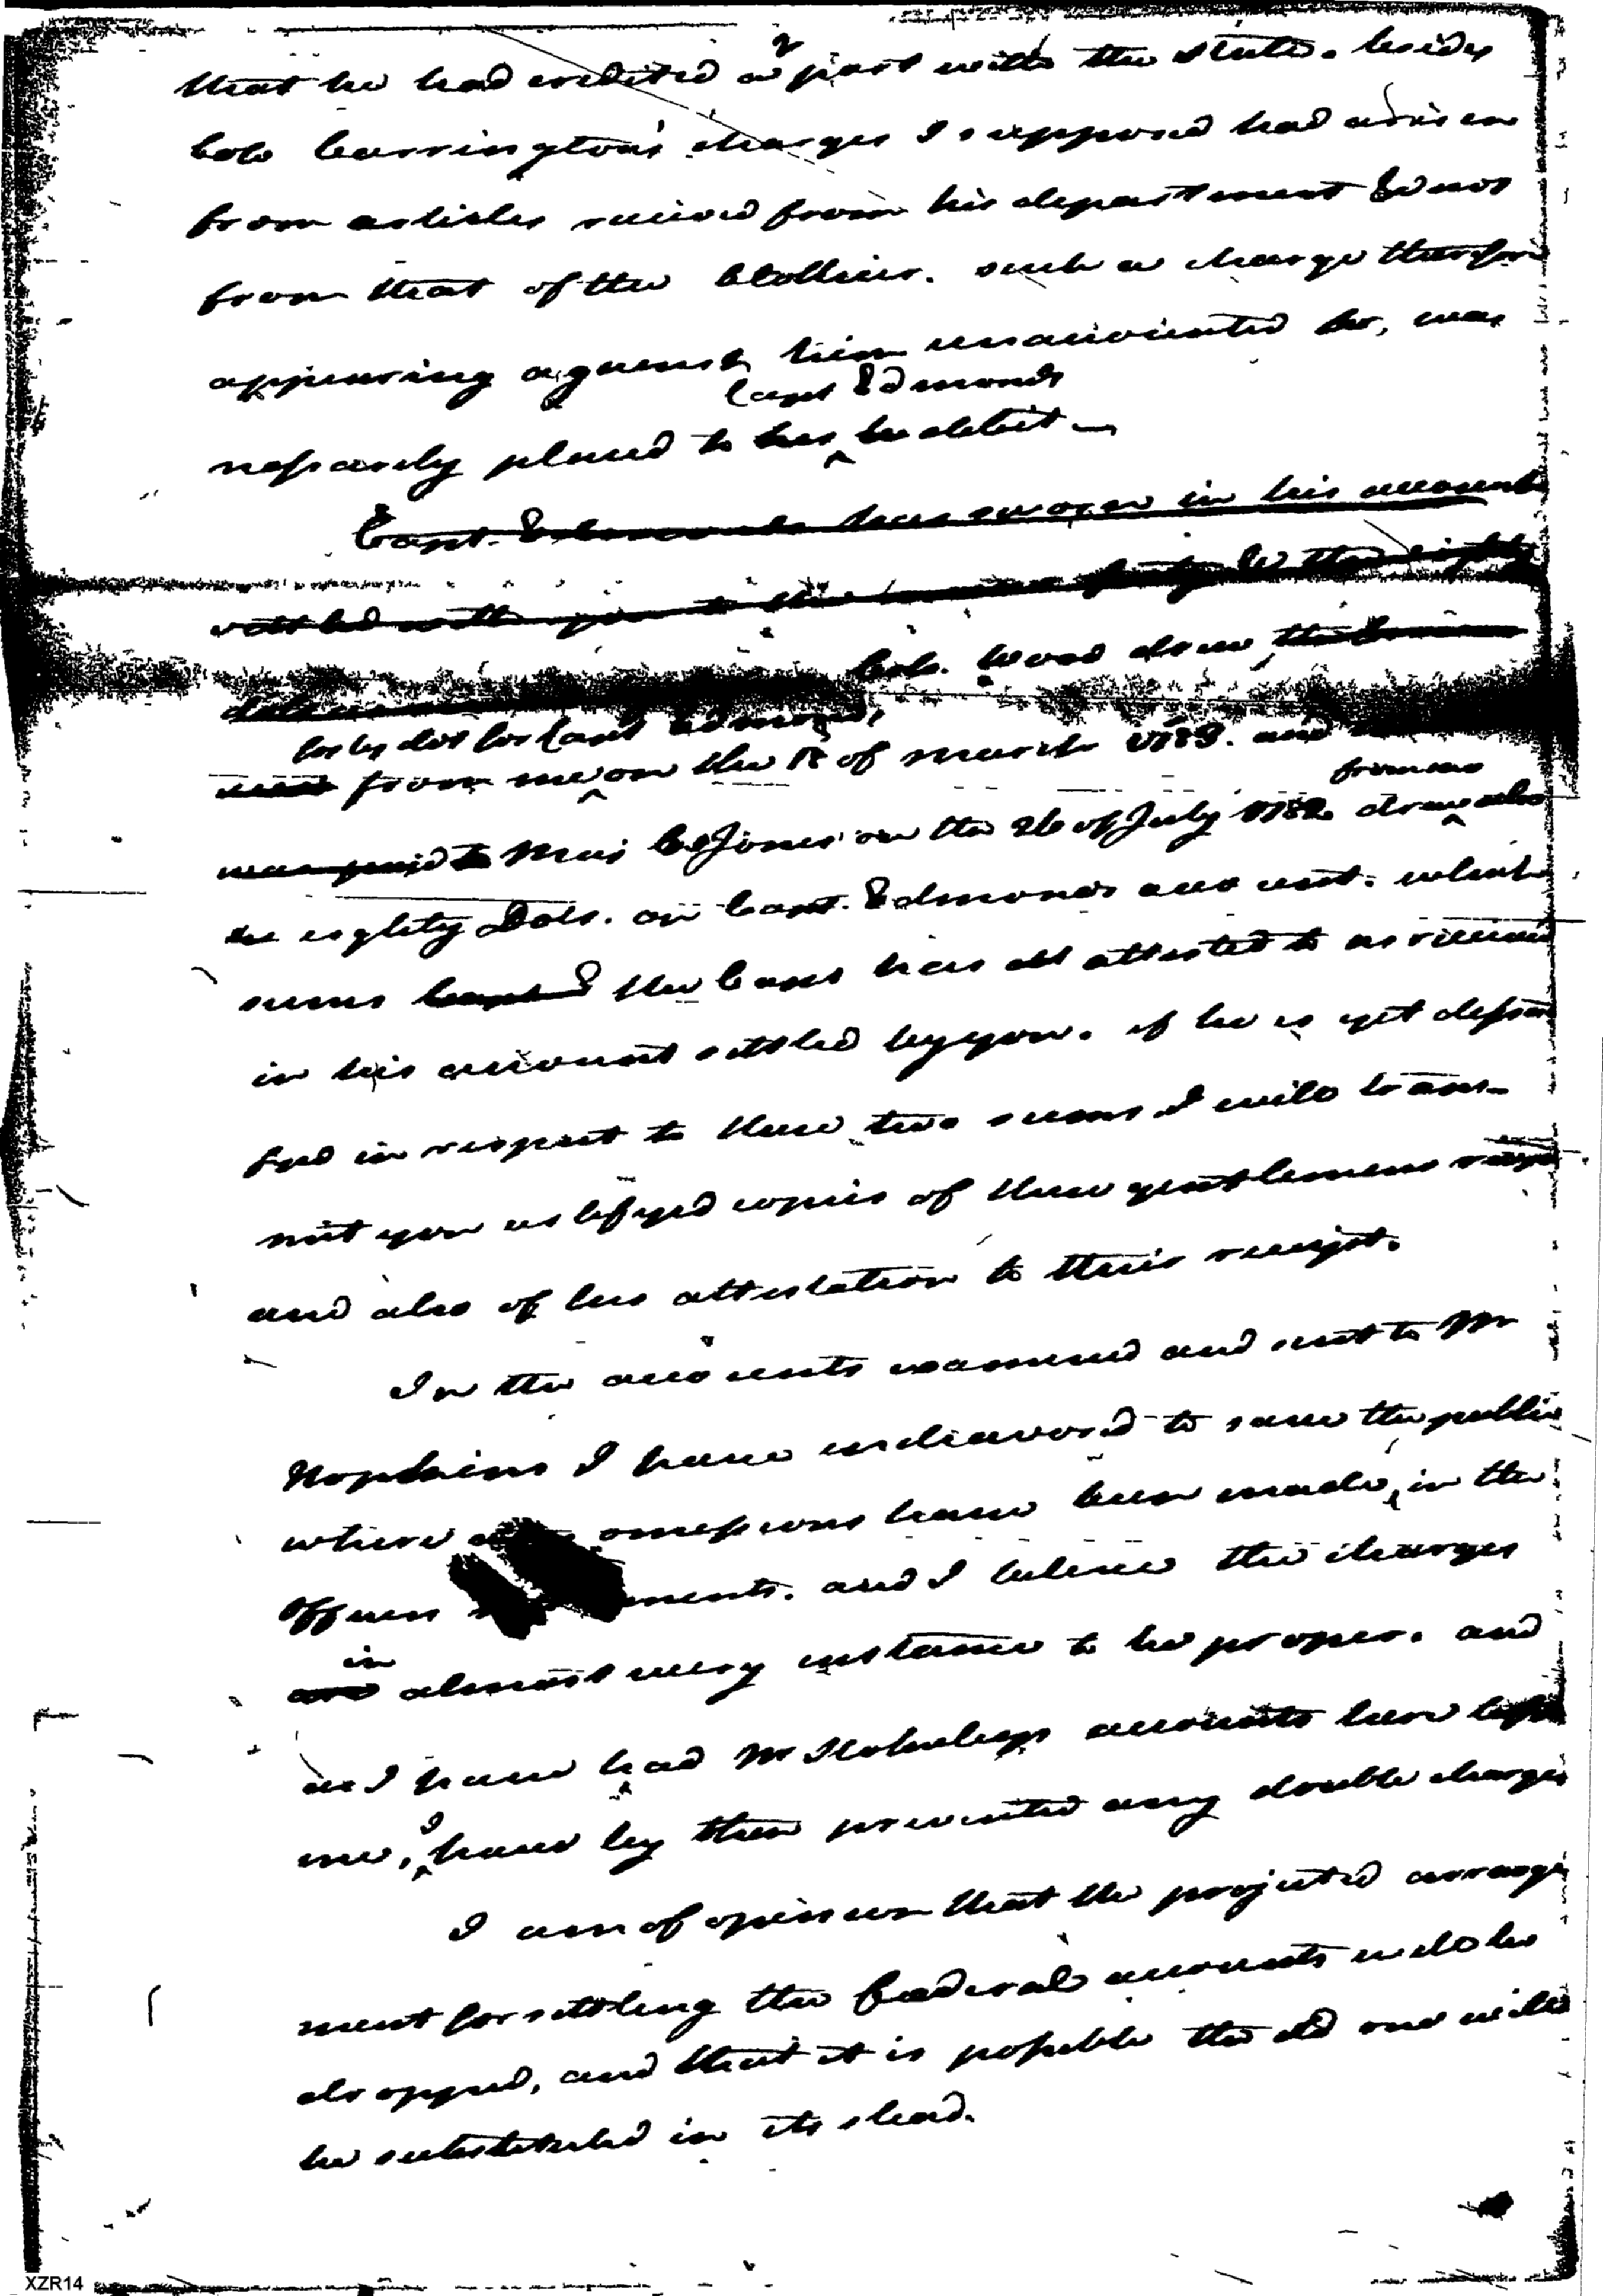 2
that he had credited a part with the state. besides
Colo Carrington's charges I supposed had arisen
from articles received from his department & not
from that of the Clothier. such a charge therefore
appearing against him unaccounted for, was
Capt Edmonds
nessarily placed to his debit
Capt. Edmonds has sworn in his account
settled with you to the
Colo. Wood drew
for Capt Edmonds,
from me on the of March 1783. and
from me
was paid to Maj C Jones on the 26 of July 1782 drew also
eighty Dols. on Capt. Edmonds account. which
sums the Capt has attested to as received
in his account settled by you. if he is yet dissatis
fyed in respect to these two sums I will trans-
mit you certifyed copies of these gentlemens
and also of his attestation to their receipt.
In the accounts examined and sent to Mr
Hopkins I have endeavored to save the public
where omissions have been made, in the
officers and I believe the charges
in
almost every instance to be proper. and
as I have had Mr accounts here before
I
me, have by them prevented any double charges
I am of opinion that the projected arrange
ment for settling the Foederal accounts will be
dropped, and that it is possible the old one will
be substituted in its stead.
XZR14